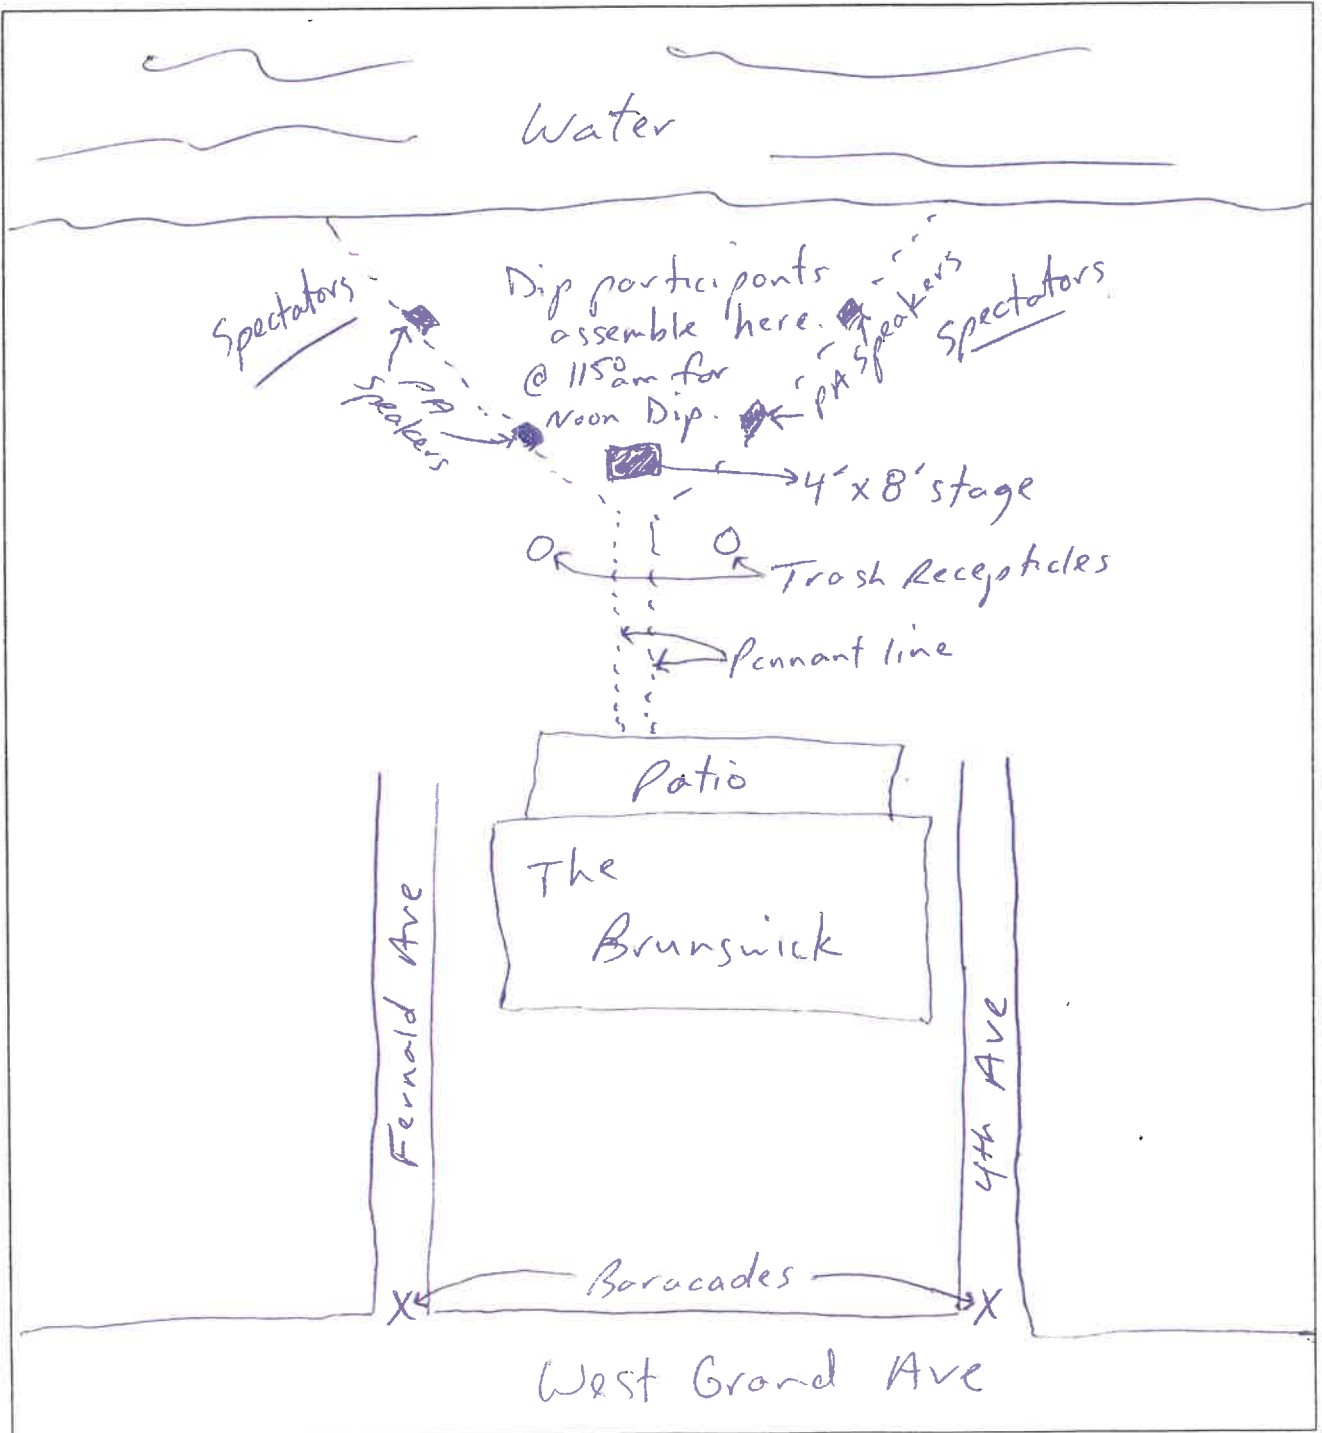 Water
Dip participants
assemble here.
@ 1150am for
Noon Dip.
Spectators
PA
Speakers
PA Speakers
Spectators
4' x 8' stage
Trash Recepticles
Pennant line
Patio
The
Brunswick
Fernald Ave
4th Ave
X Baracades X
West Grand Ave